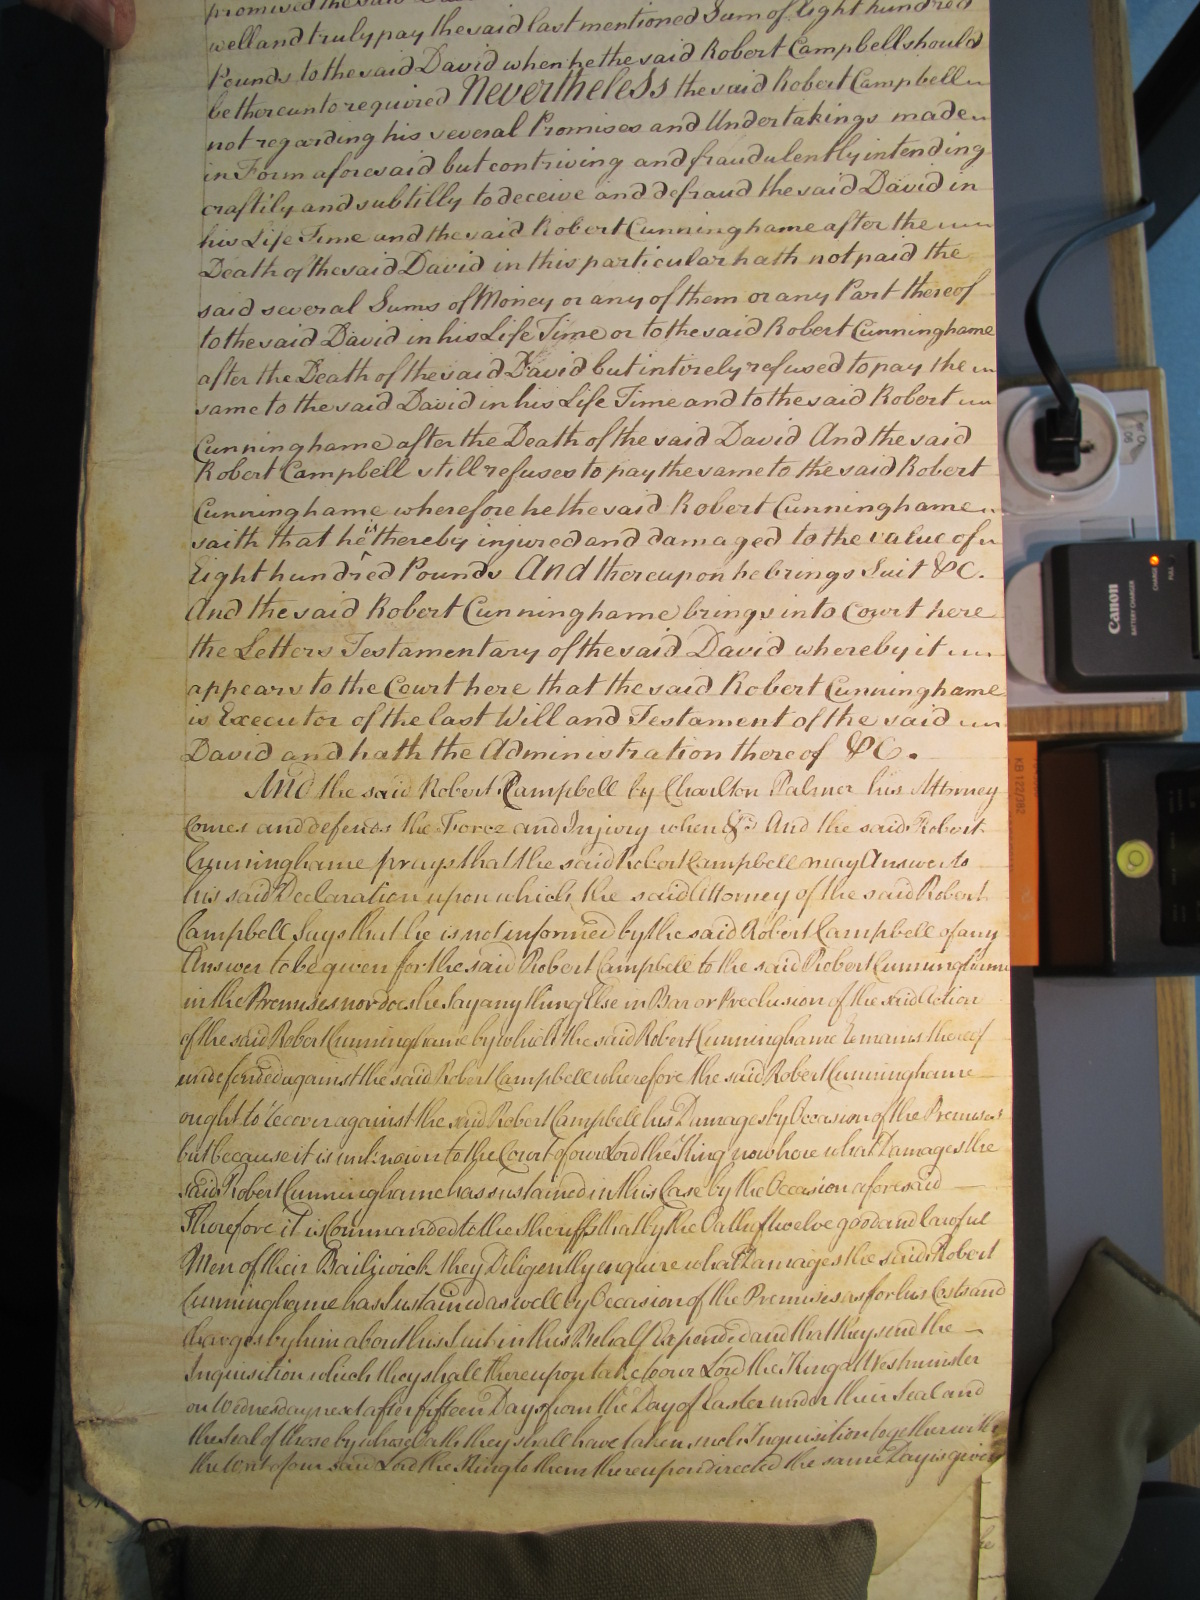 promised the said David
well and truly pay the said last mentioned Sum of Eight hundred
Pounds to the said David when he the said Robert Campbell should
be thereunto required Nevertheless the said Robert Campbell
not regarding his several Promises and Undertakings made
in Form aforesaid but contriving and fraudulently intending
craftily and subtilly to deceive and defraud the said David in
his Life Time and the said Robert Cunninghame after the
Death of the said David in this particular hath not paid the
said several Sums of Money or any of them or any Part thereof
to the said David in his Life Time or to the said Robert Cunninghame
after the Death of the said David but intirely refused to pay the
same to the said David in his Life Time and to the said Robert
Cunninghame after the Death of the said David And the said
Robert Campbell still refuses to pay the same to the said Robert
Cunninghame wherefore he the said Robert Cunninghame
saith that he is thereby injured and damaged to the value of
Eight hundred Pounds And thereupon he brings Suit &C.
And the said Robert Cunninghame brings into Court here
the Letters Testamentary of the said David whereby it
appears to the Court here that the said Robert Cunninghame
is Executor of the last Will and Testament of the said
David and hath the Administration thereof &C.
And the said Robert Campbell by Charlton Palmer his Attorney
Comes and defends the Force and Injury when &c And the said Robert
Cunninghame prays that the said Robert Campbell may Answer to
his said Declaration upon which the said Attorney of the said Robert
Campbell Says that he is not informed by the said Robert Campbell of any
Answer to be given for the said Robert Campbell to the said Robert Cunninghame
in the Premises nor does he Say any thing Else in Bar or Preclusion of the said Action
of the said Robert Cunninghame by which the said Robert Cunninghame Remains thereof
undefended against the said Robert Campbell wherefore the said Robert Cunninghame
ought to Recover against the said Robert Campbell his Damages by Occasion of the Premises
but because it is unknown to the Court of our Lord the King now here what Damages the
said Robert Cunninghame has sustained in this Case by the Occasion aforesaid
Therefore it is Commanded to the Sheriffs that by the Oath of twelve good and lawful
Men of their Bailiwick they Diligently enquire what Damages the said Robert
Cunninghame has Sustained as well by Occasion of the Premises as for his Costs and
Charges by him about his Suit in this Behalf Expended and that they send the
Inquisition which they shall thereupon take to our Lord the King at Westminster
on Wednesday next after fifteen Days from the Day of Easter under their Seal and
the Seal of those by whose Oath they shall have taken such Inquisition together with
the Writ of our said Lord the King to them thereupon directed the same Day is given
Canon
BATTERY CHARGER
CHARGE
FULL
KB 122/382